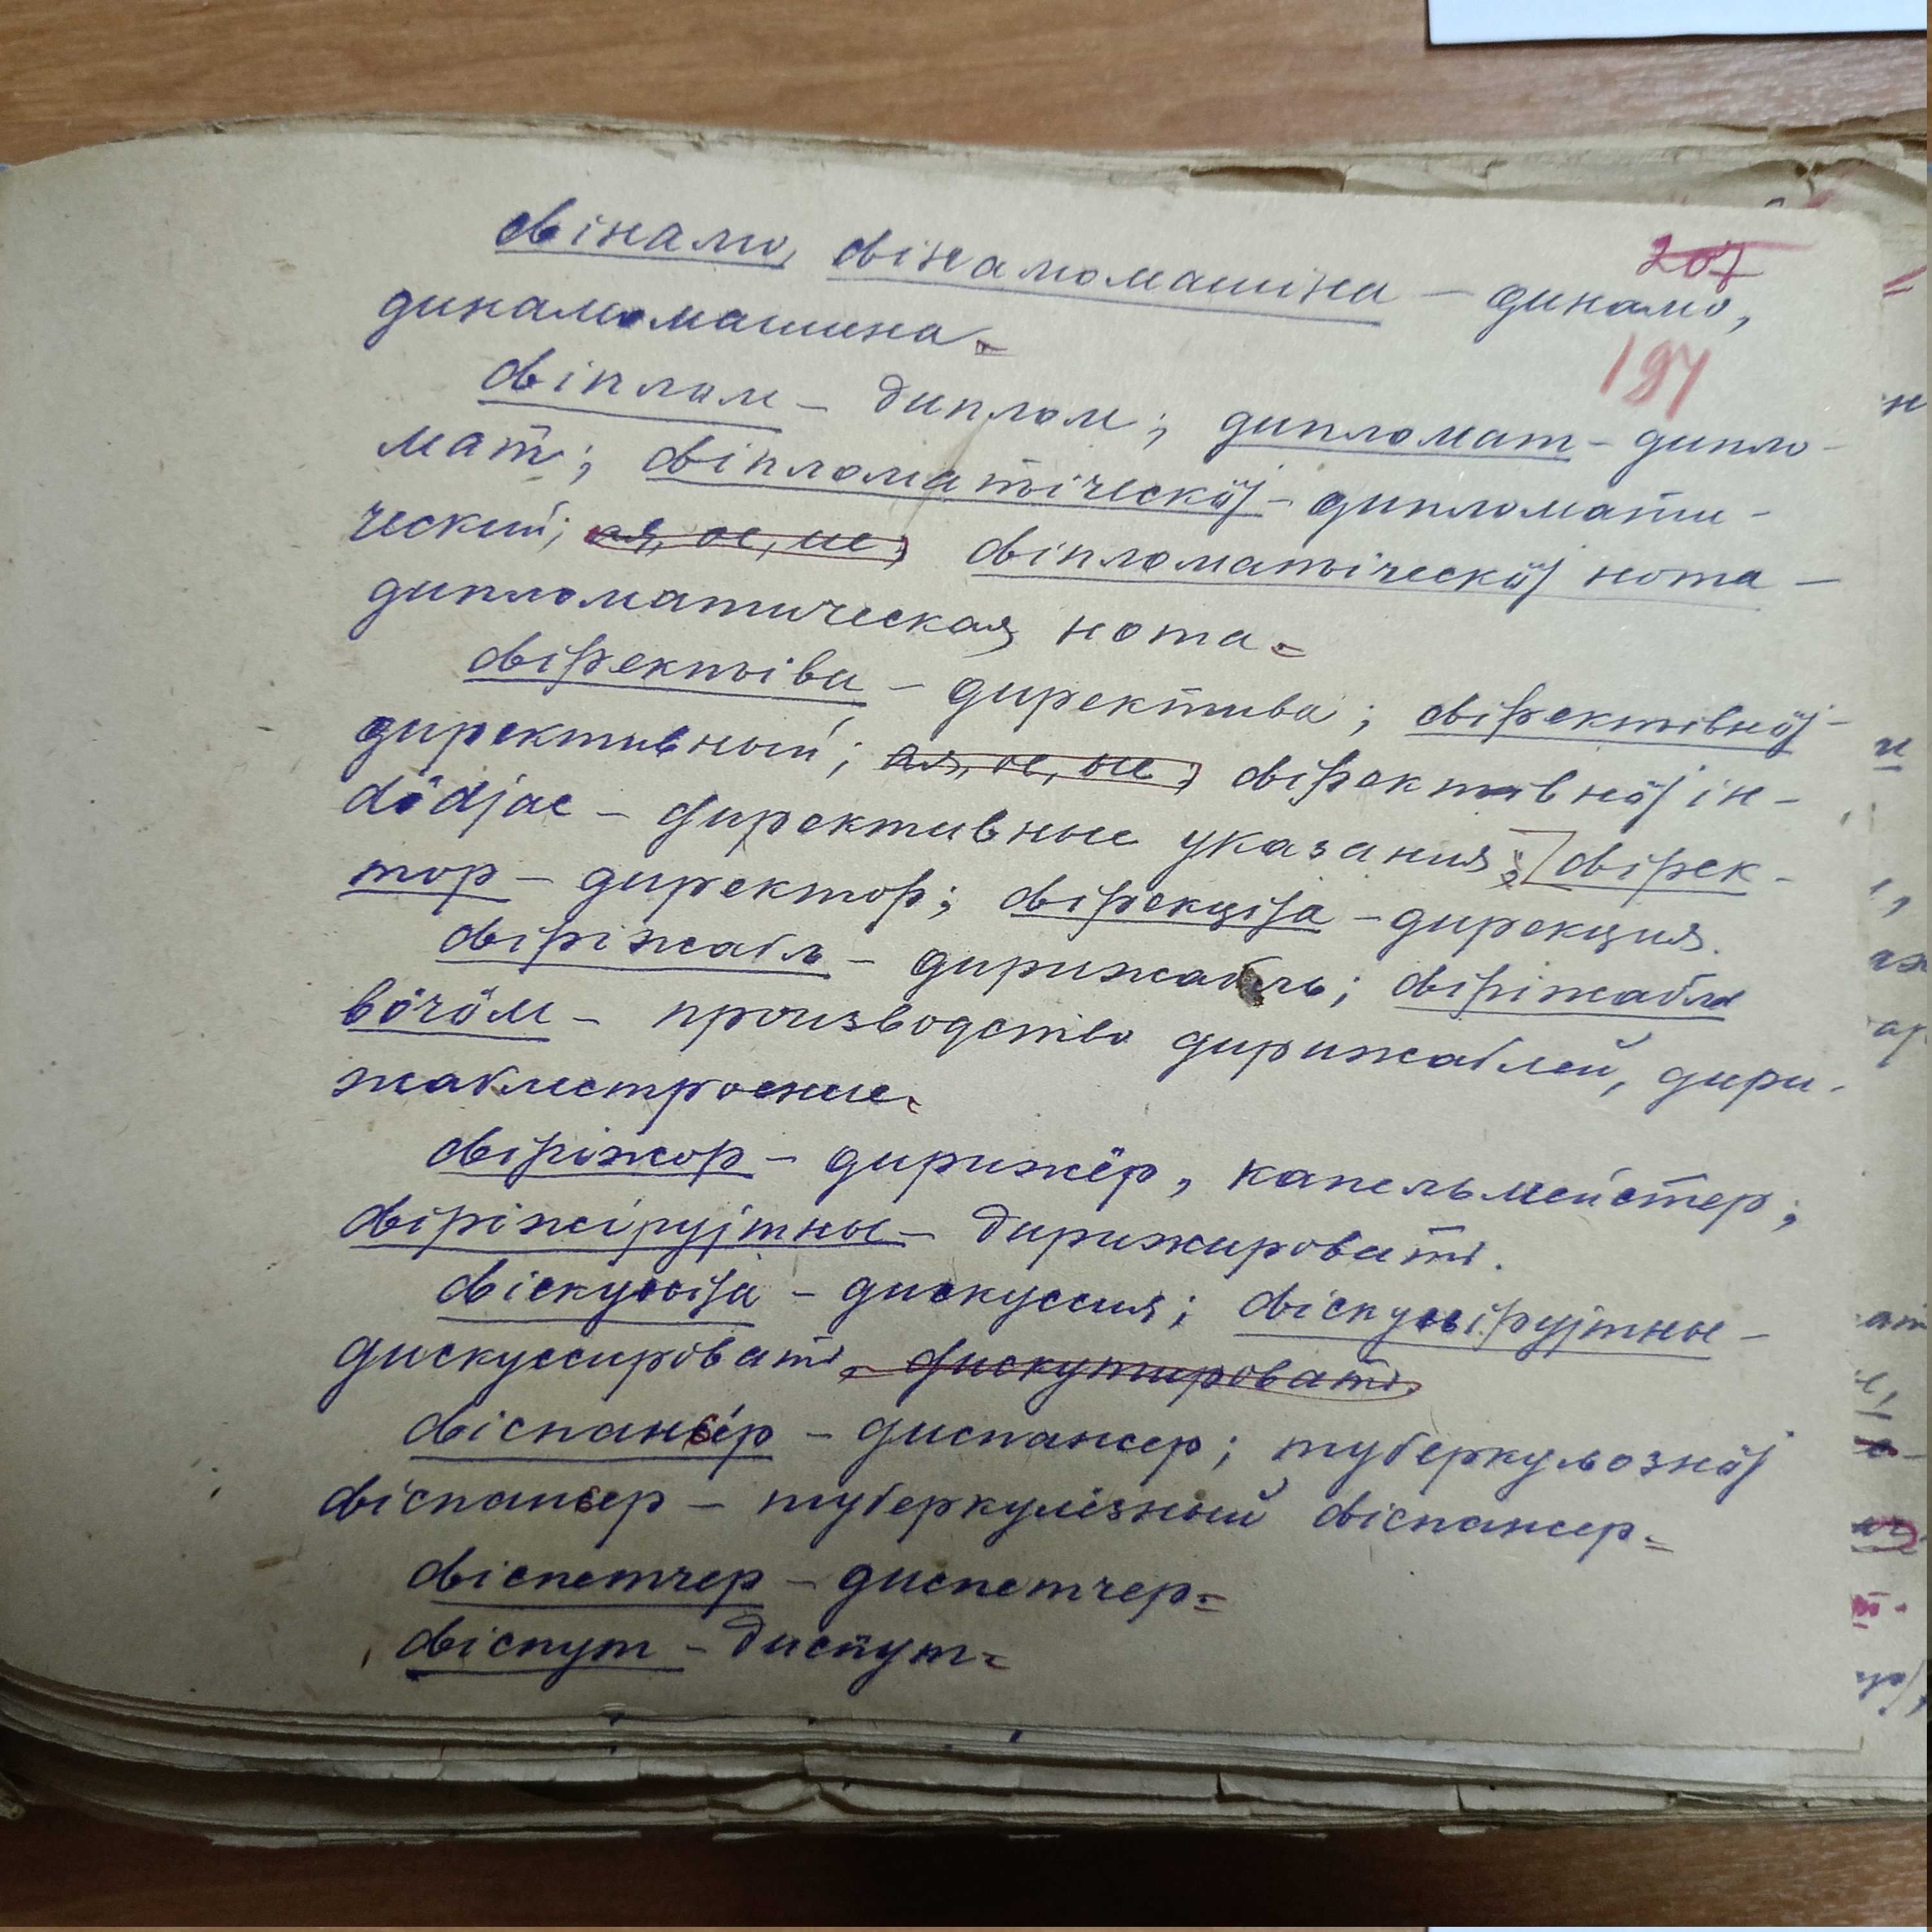 ԃінамо, ԃінамомашіна – динамо,
207
динамомашина.
194
ԃіплом – диплом; дипломат – дипло-
мат; ԃіпломаԏіческӧј – дипломати-
ческий; ая, ое, ие; ԃіпломаԏіческӧј нота –
дипломатическая нота.
ԃірекԏіва – директива; ԃірекԏівнӧј –
директивный; ая, ое, ые; ԃірекԏівнӧј ін-
ԁӧԁјас – директивные указания; [ԃірек-
тор – директор; ԃірекціја – дирекция.
ԃіріжабԉ – дирижабль; ԃіріжабԉ
вӧчӧм – производство дирижаблей, дири-
жаблестроение.
ԃіріжор – дирижёр, капельмейстер;
ԃіріжірујтны – дирижировать.
ԃіскуԍԍіја – дискуссия; ԃіскуԍԍірујтны –
дискуссировать, дискутировать.
ԃіспанԍер – диспансер; туберкуԉознӧј
ԃіспанԍер – туберкулёзный ԃіспансер.
ԃіспетчер – диспетчер.
ԃіспут – диспут.